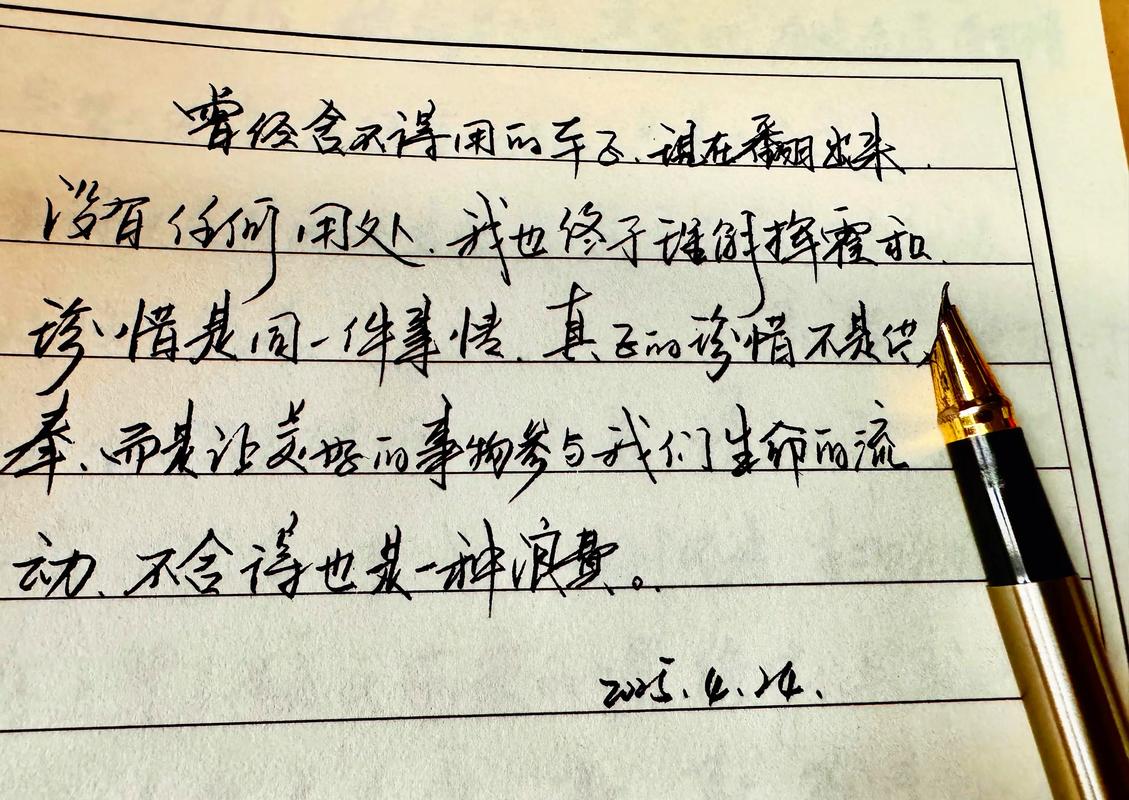 曾经舍不得用的车子,现在翻出来
没有任何用处,我也终于理解挥霍和
珍惜是同一件事情,真正的珍惜不是供
奉,而是让美好的事物参与我们生命的流
动,不舍得也是一种浪费。
2025.4.24.